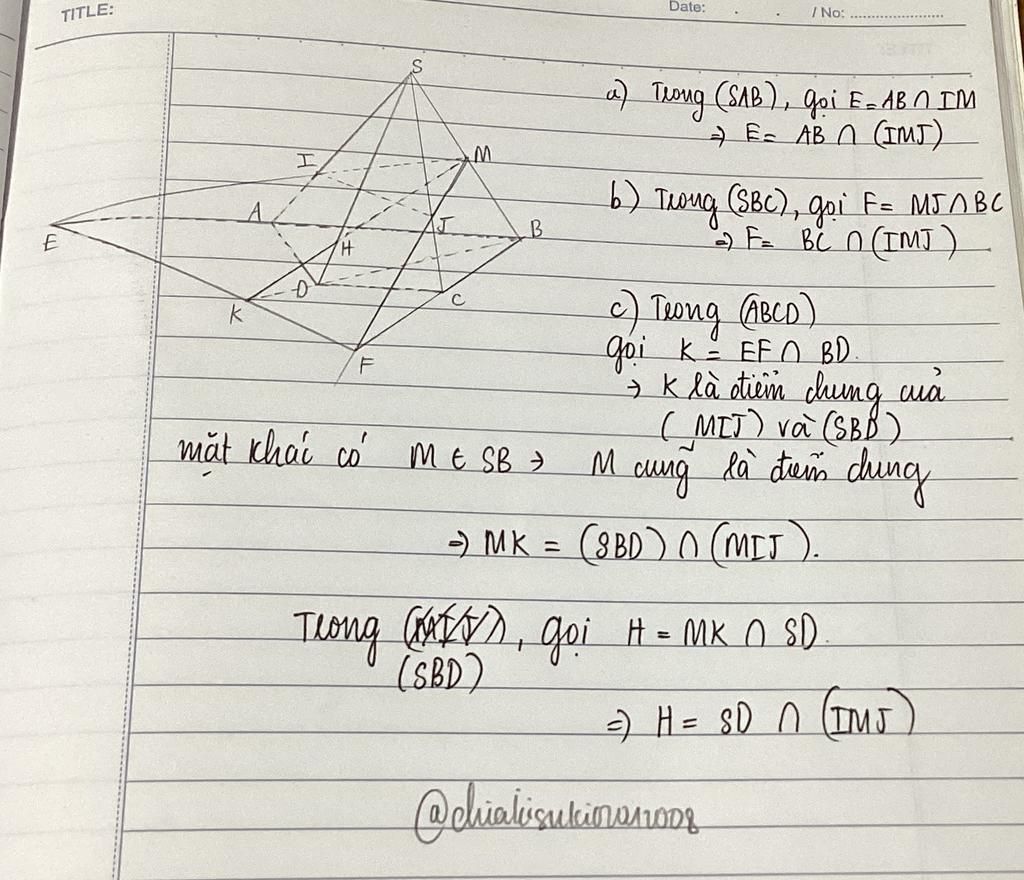 TITLE:
Date: . . / No: ........................
S
I
M
A
J
B
E
H
D
C
K
F
a) Trong (SAB), gọi E = AB ∩ IM
⇒ E = AB ∩ (IMJ)
b) Trong (SBC), gọi F = MJ ∩ BC
⇒ F = BC ∩ (IMJ)
c) Trong (ABCD)
gọi K = EF ∩ BD.
→ K là điểm chung cuả
(MIJ) và (SBD)
mặt khác có M ∈ SB → M cũng là điểm chung
⇒ MK = (SBD) ∩ (MIJ).
Trong , gọi H = MK ∩ SD.
(SBD)
⇒ H = SD ∩ (IMJ)